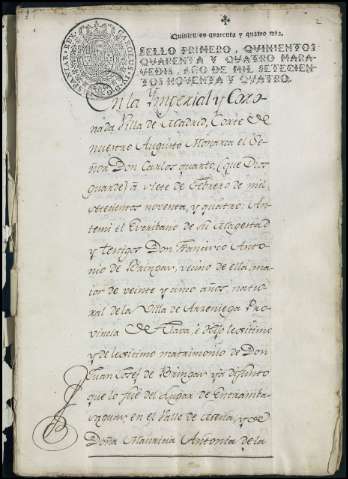 Quinientos quarenta y quatro mrs.
SELLO PRIMERO, QUINIENTOS
QUARENTA Y QUATRO MARA-
VEDIS, AÑO DE MIL SETECIEN-
TOS NOVENTA Y QUATRO.
En la Ymperial y Coro-
nada Villa de Madrid, Corte de
nuestro Augusto Monarca el Se-
ñor Don Carlos quarto, (que Dios
guarde) à siete de Febrero de mil
setecientos noventa, y quatro: An-
temi el Escribano de su Magestad
y testigos Don Francisco Anto-
nio de Bringas, vecino de ella, ma-
ior de veinte y cinco años, natu-
ral de la Villa de Arzeniega Pro-
vincia de Alava, è hijo lexitimo
y de lexitimo matrimonio de Don
Juan Josef de Bringas ya difunto
que lo fue del Lugar de
en el Valle de y de
Doña Maurina Antonia de la